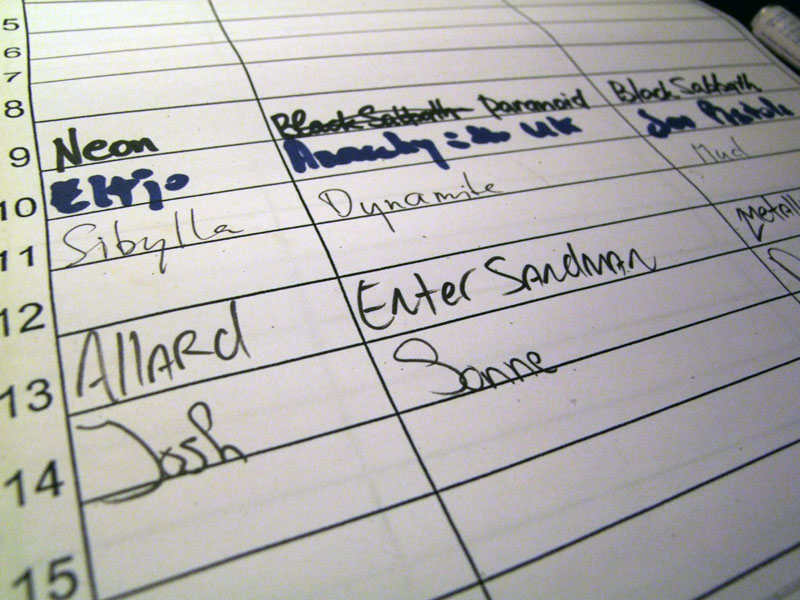 5
6
7
8
9 Neon Black Sabbath Paranoid Black Sabbath
10 Eltjo Anarchy UK Sex Pistols
11 Sibylla Dynamite Mud
12
13 Allard Enter Sandman Metall
14 Josh Sonne
15